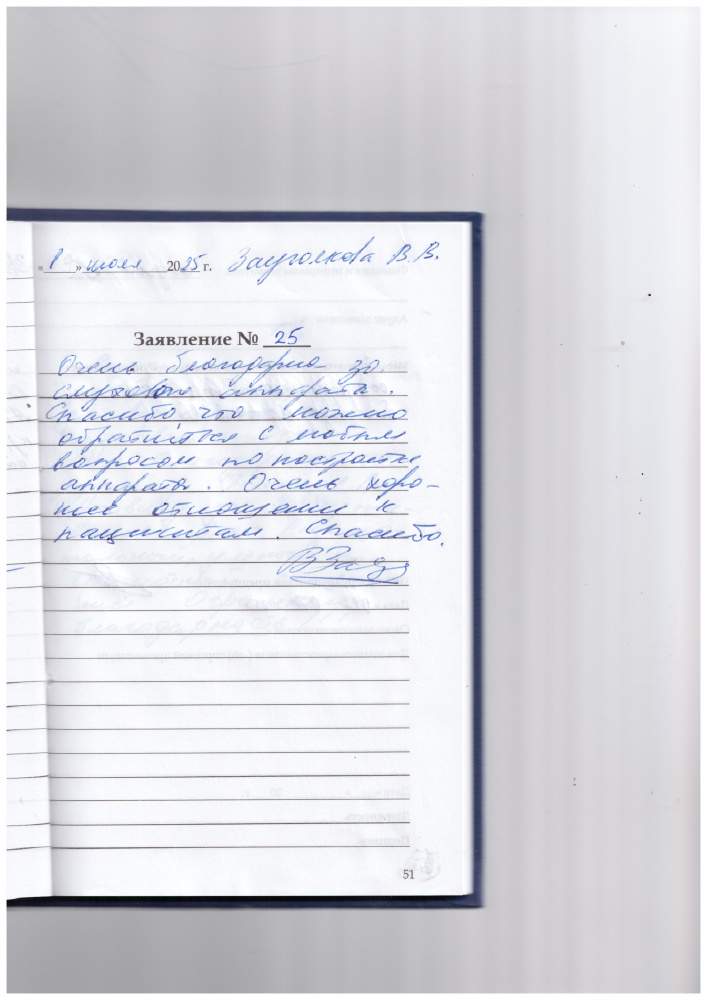 « 8 » июля 2025 г. Зауголкова В. В.
Заявление № 25
Очень благодарна за
слуховые аппарата.
Спасибо что можно
обратиться с любым
вопросом по настройке
аппарата. Очень хоро-
шее отношение к
пациентам. Спасибо.
51